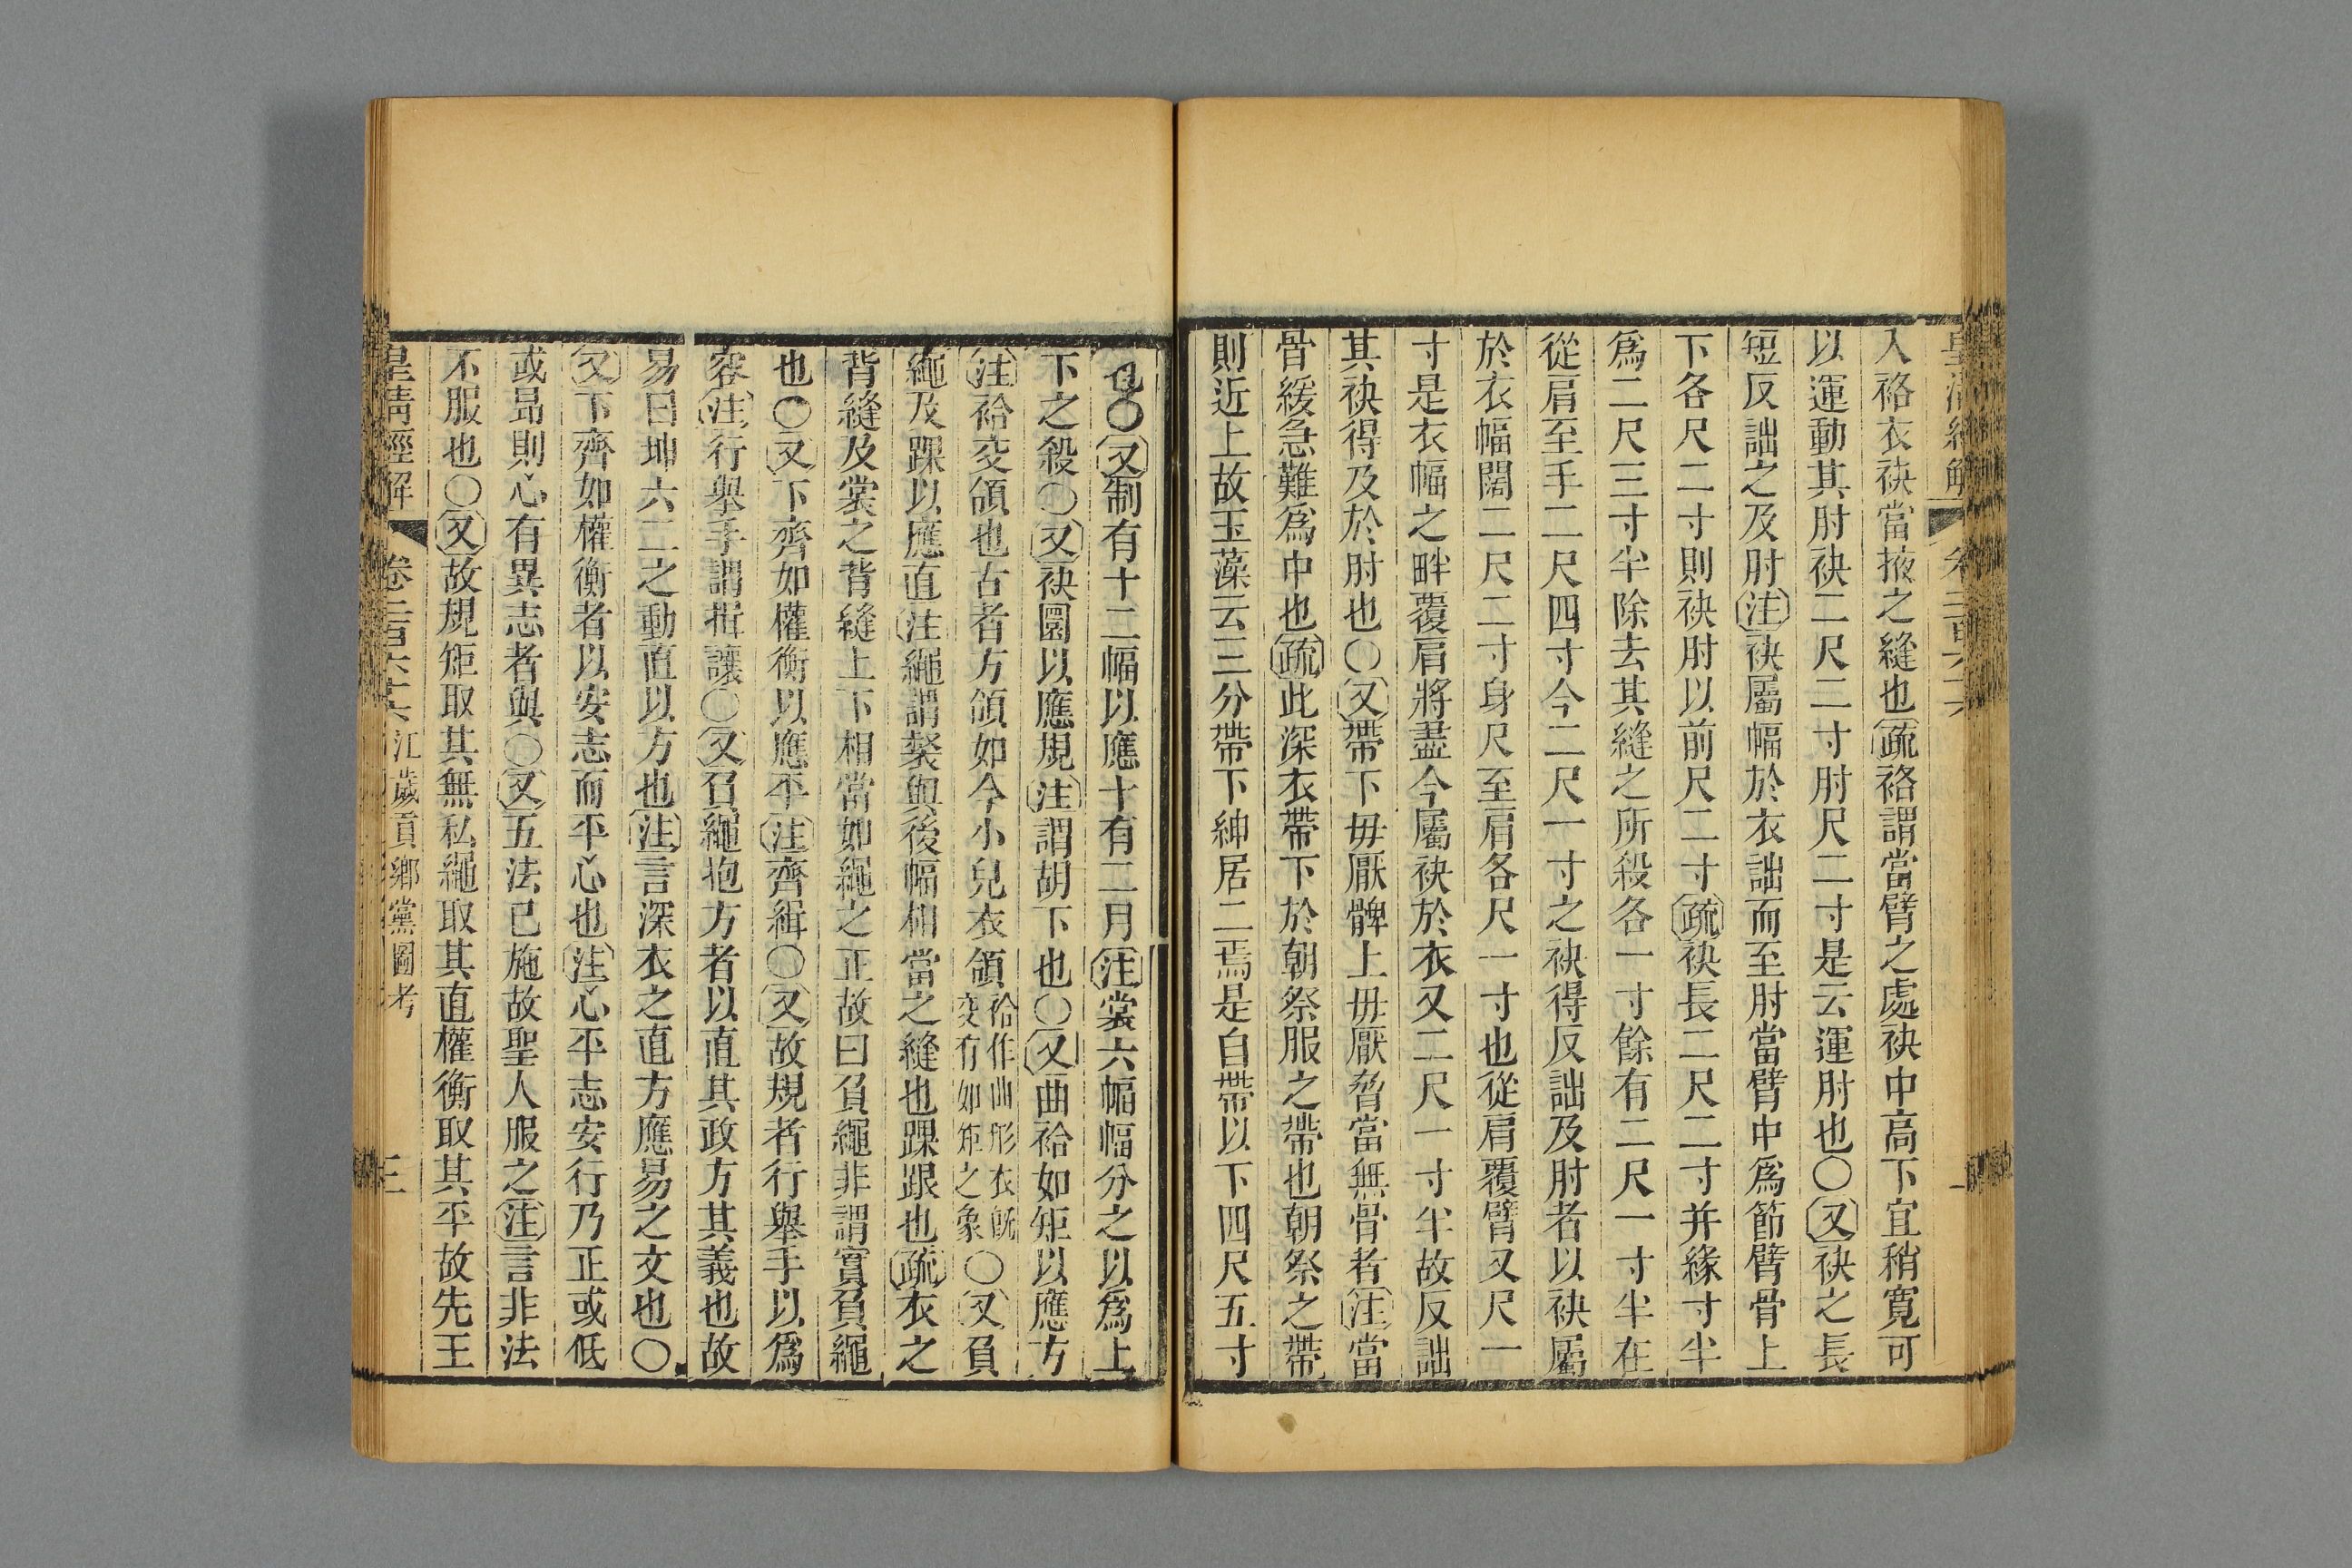 入袼衣袂當掖之縫也疏袼謂當臂之處袂中高下宜稍寬可
以運動其肘袂二尺二寸肘尺二寸是云運肘也○又袂之長
短反詘之及肘注袂屬幅於衣詘而至肘當臂中爲節臂骨上
下各尺二寸則袂肘以前尺二寸疏袂長二尺二寸并緣寸半
爲二尺三寸半除去其縫之所殺各一寸餘有二尺一寸半在
從肩至手二尺四寸今二尺一寸之袂得反詘及肘者以袂屬
於衣幅闊二尺二寸身尺至肩各尺一寸也從肩覆臂又尺一
寸是衣幅之畔覆肩將盡今屬袂於衣又二尺一寸半故反詘
其袂得及於肘也○又帶下毋厭髀上毋厭脅當無骨者注當
骨緩急難爲中也疏此深衣帶下於朝祭服之帶也朝祭之帶
則近上故玉藻云三分帶下紳居二焉是自帶以下四尺五寸
也○又制有十二幅以應十有二月注裳六幅幅分之以爲上
下之殺○又袂圜以應規注謂胡下也○又曲袷如矩以應方
注袷交領也古者方領如今小兒衣領袷作曲形衣旣交有如矩之象○又負
繩及踝以應直注繩謂裻與後幅相當之縫也踝跟也疏衣之
背縫及裳之背縫上下相當如繩之正故曰負繩非謂實負繩
也○又下齊如權衡以應平注齊緝○又故規者行舉手以爲
容注行舉手謂揖讓○又召繩抱方者以直其政方其義也故
易曰坤六二之動直以方也注言深衣之直方應易之文也○
又下齊如權衡者以安志而平心也注心平志安行乃正或低
或昂則心有異志者與○又五法已施故聖人服之注言非法
不服也○又故規矩取其無私繩取其直權衡取其平故先王
皇清經解 卷二百六十六 江歲貢鄉黨圖考 三